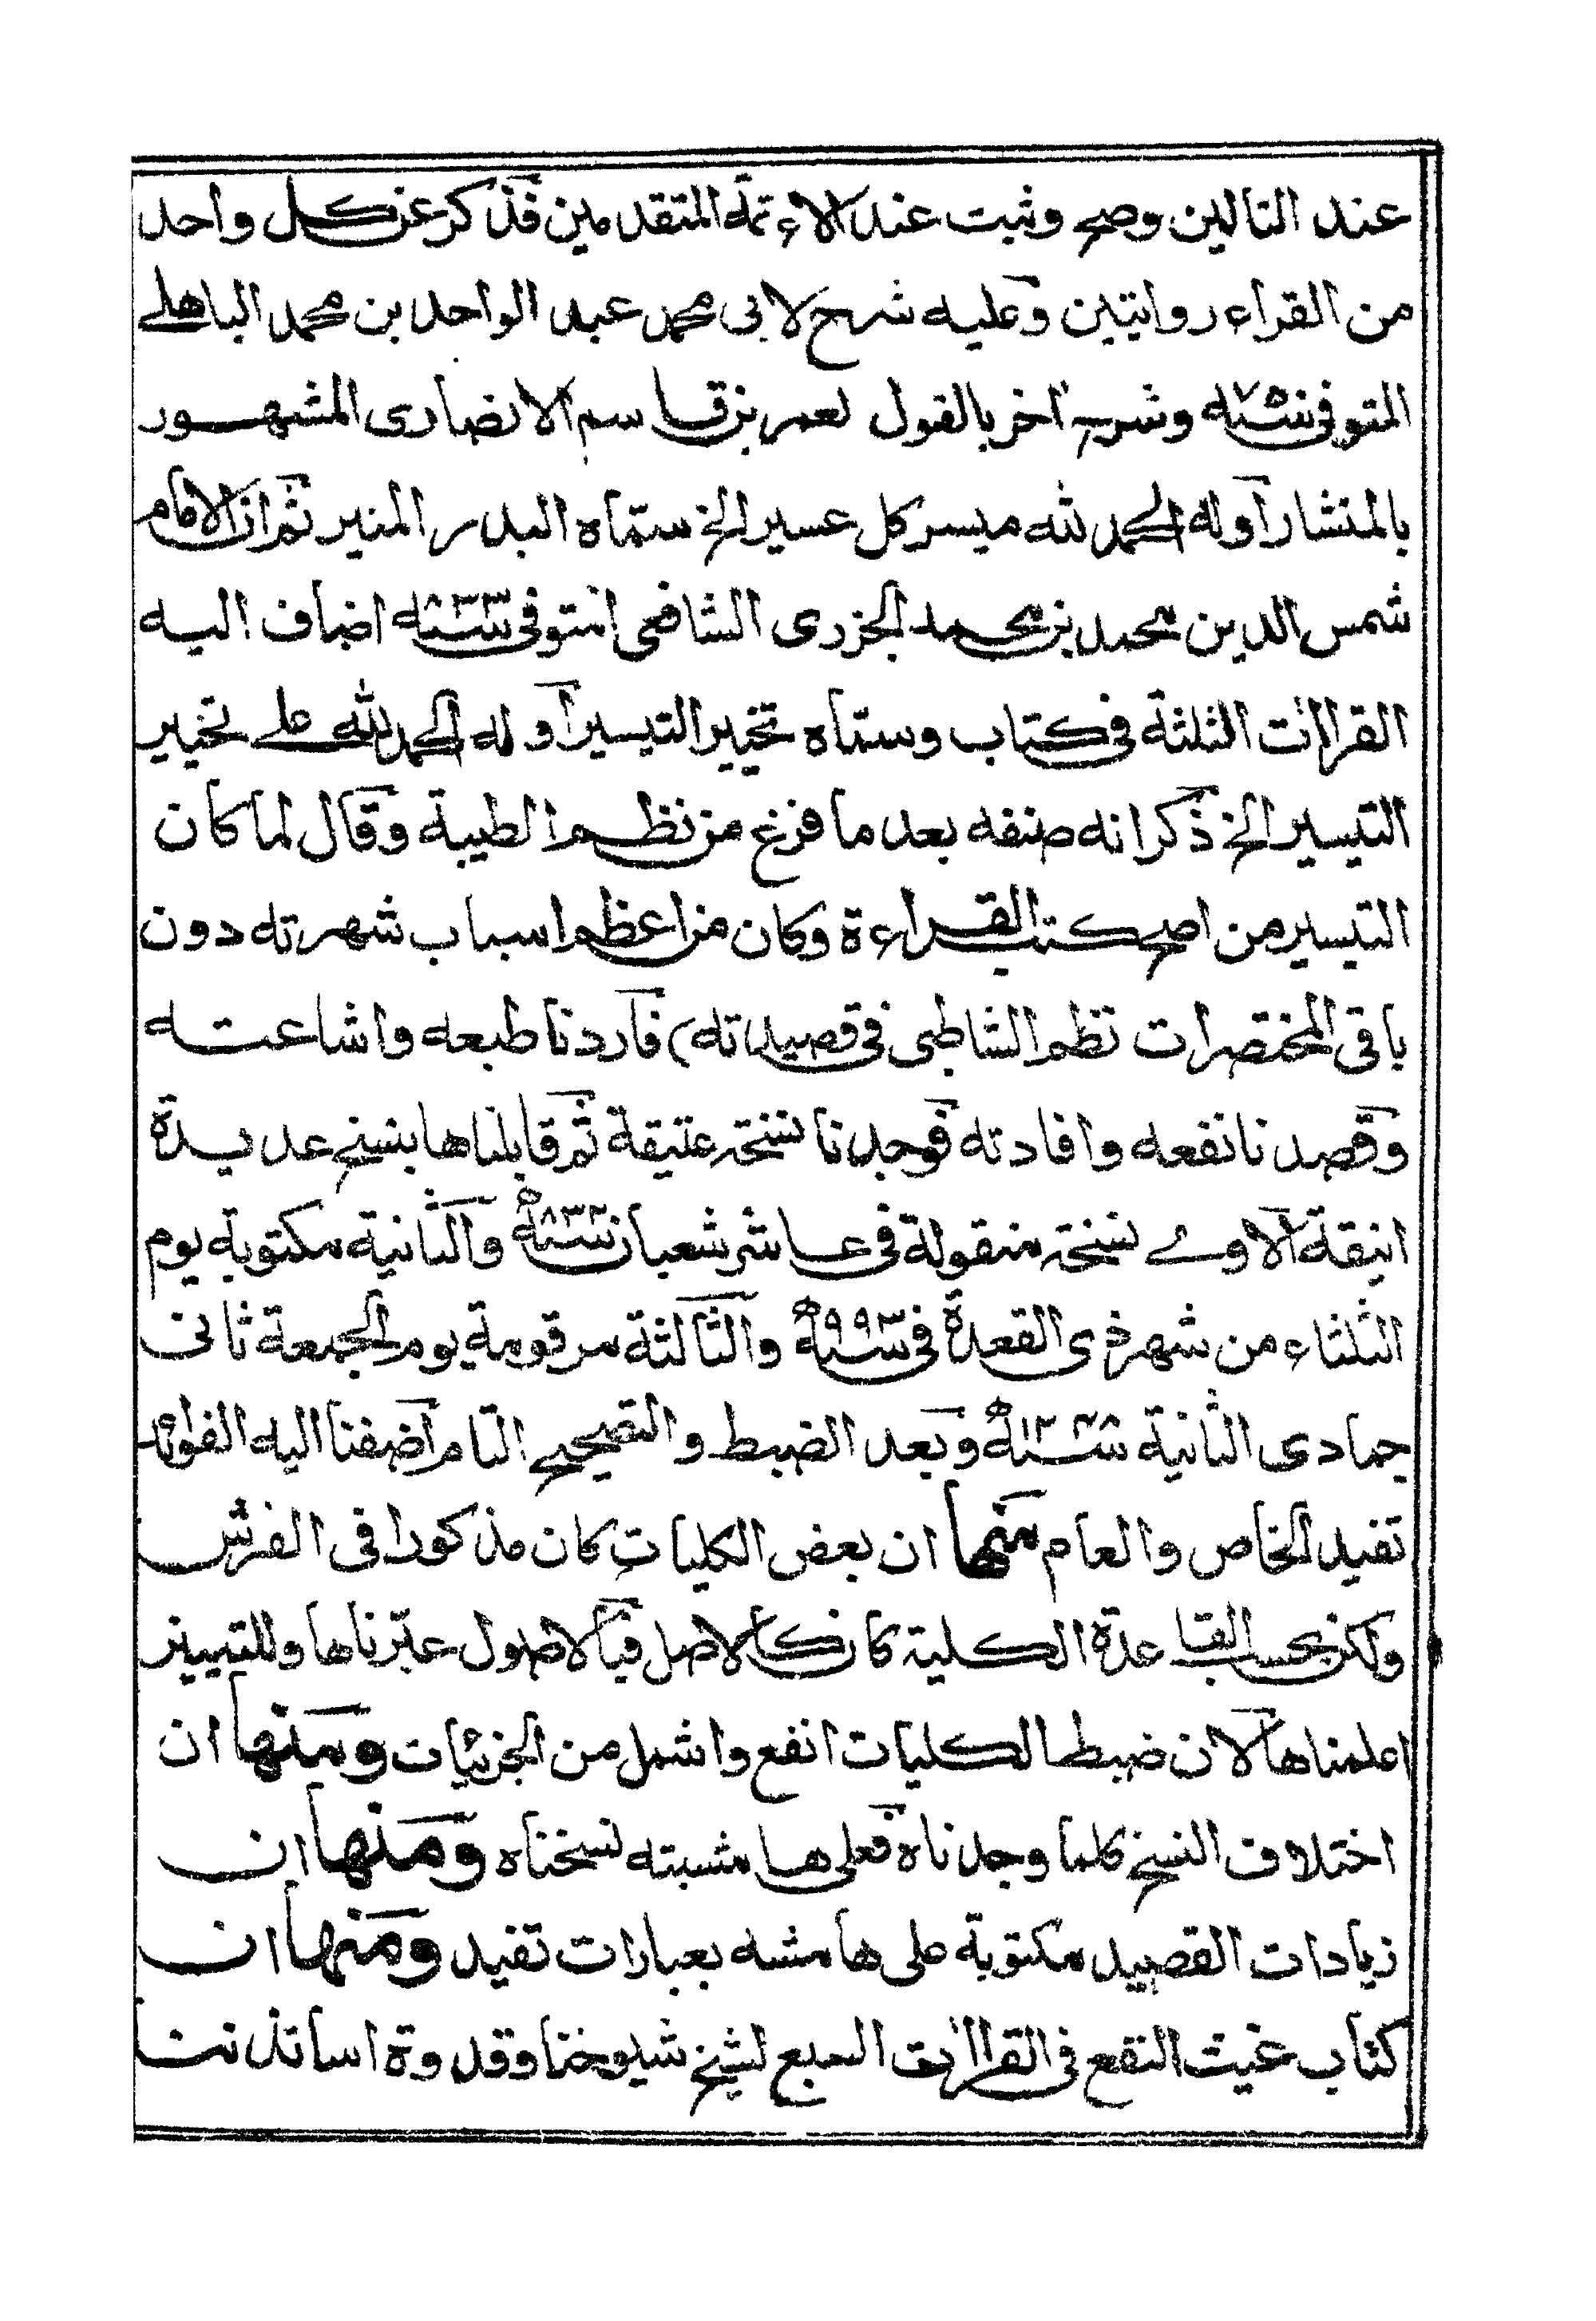 عند التالين وصح وثبت عند الاءئمة المتقدمين فذكر عن كل واحد
من القراء روايتين وعليه شرح لابى محمد عبد الواحد بن محمد الباهلے
المتوفى سنة ٧٥٠ه وشرح اخر بالقول لعمر بن قاسم الانصارى المشهور
بالمنشار اوله الحمد لله ميسر كل عسير الخ ستماه البدر المنير ثم ان الامام
شمس الدين محمد بن محمد الجزرى الشافعى المتوفى سنة ٨٣٣ه اضاف اليه
القراات الثلثة فى كتاب وسماه تحبير التيسير اوله الحمد لله على تحبير
التيسير الخ ذكر انه صنفه بعد ما فرغ من نظم الطيبة وقال لما كان
التيسير من اصح كتب القراءة وكان من اعظم اسباب شهرته دون
باقى المختصرات نظم الشاطبى فى قصيدته) فاردنا طبعه واشاعته
وقصدنا نفعه وافادته فوجدنا نسخة عتيقة ثم قابلناها بنسخ عديدة
انيقة الاولے نسخة منقولة فى عاشر شعبان سنة ٨٣٢ه والثانية مكتوبة يوم
الثلثاء من شهر ذى القعدة فى سنة ٩٩٣ه والثالثة مرقومة يوم الجمعة ثانى
جمادى الثانية سنة ه وبعد الضبط والتصحيح التام اضفنا اليه الفوائد
تفيد الخاص والعام منها ان بعض الكليات كان مذكورا فى الفرش
ولكن بحسب القاعدة الكلية كان كالاصل فبالاصول عبرناها وللتمييز
اعلمناها لان ضبط الكليات انفع واشمل من الجزئيات ومنها ان
اختلاف النسخ كلما وجدناه فعلى هامشته نسخناه ومنها ان
زيادات القصيد مكتوبة على هامشه بعبارات تفيد ومنها ان
كتاب غيث النفع فى القراات السبع لشيخ شيوخنا وقدوة اساتذتنا